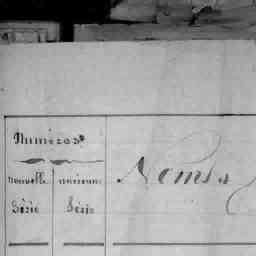 Numéros
Noms
nouvelle ancienne
Série Série